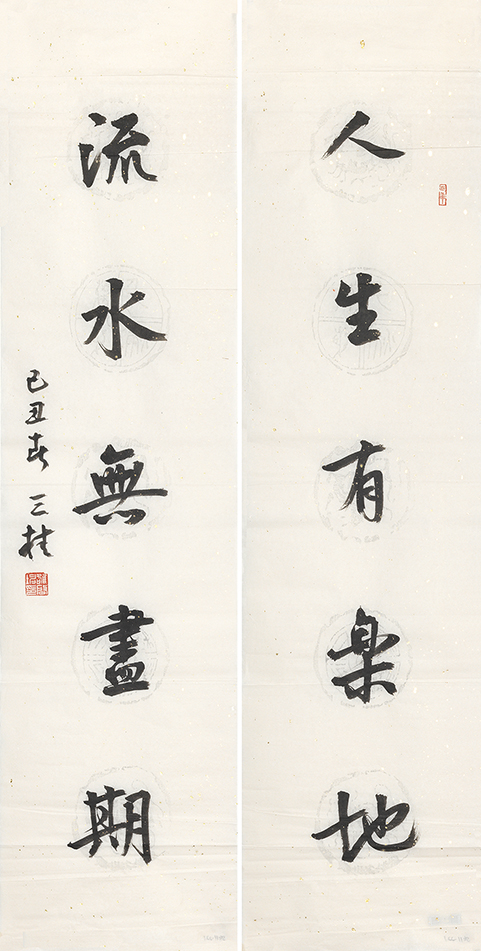 人生有楽地
流水無盡期
己丑春 三桂